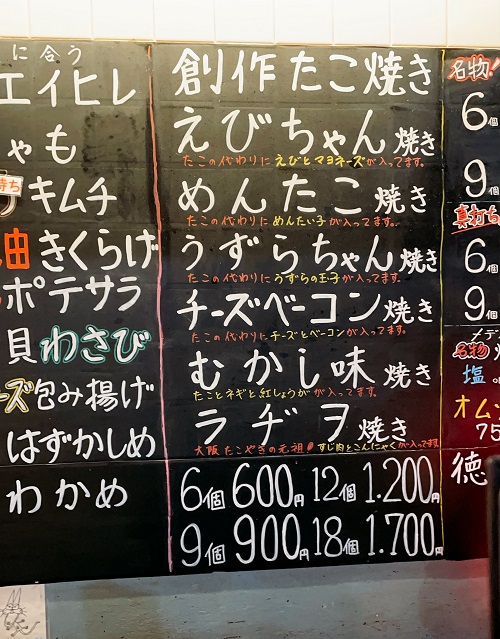 に合う
エイヒレ
ゃも
キムチ
油きくらげ
ポテサラ
貝わさび
ーズ包み揚げ
はずかしめ
わかめ
創作たこ焼き
えびちゃん焼き
たこの代わりにえびとマヨネーズが入ってます。
めんたこ焼き
たこの代わりにめんたい子が入ってます。
うずらちゃん焼き
たこの代わりにうずらの玉子が入ってます。
チーズベーコン焼き
たこの代わりにチーズとベーコンが入ってます。
むかし味焼き
たことネギと紅しょうがが入ってます。
ラヂヲ焼き
大阪たこやきの元祖!すじ肉とこんにゃくが入ってます
6個600円 12個1.200円
9個900円 18個1.700円
名物!
6個
9個
真打ち
6個
9個
メデ
名物
塩
オム
75
徳